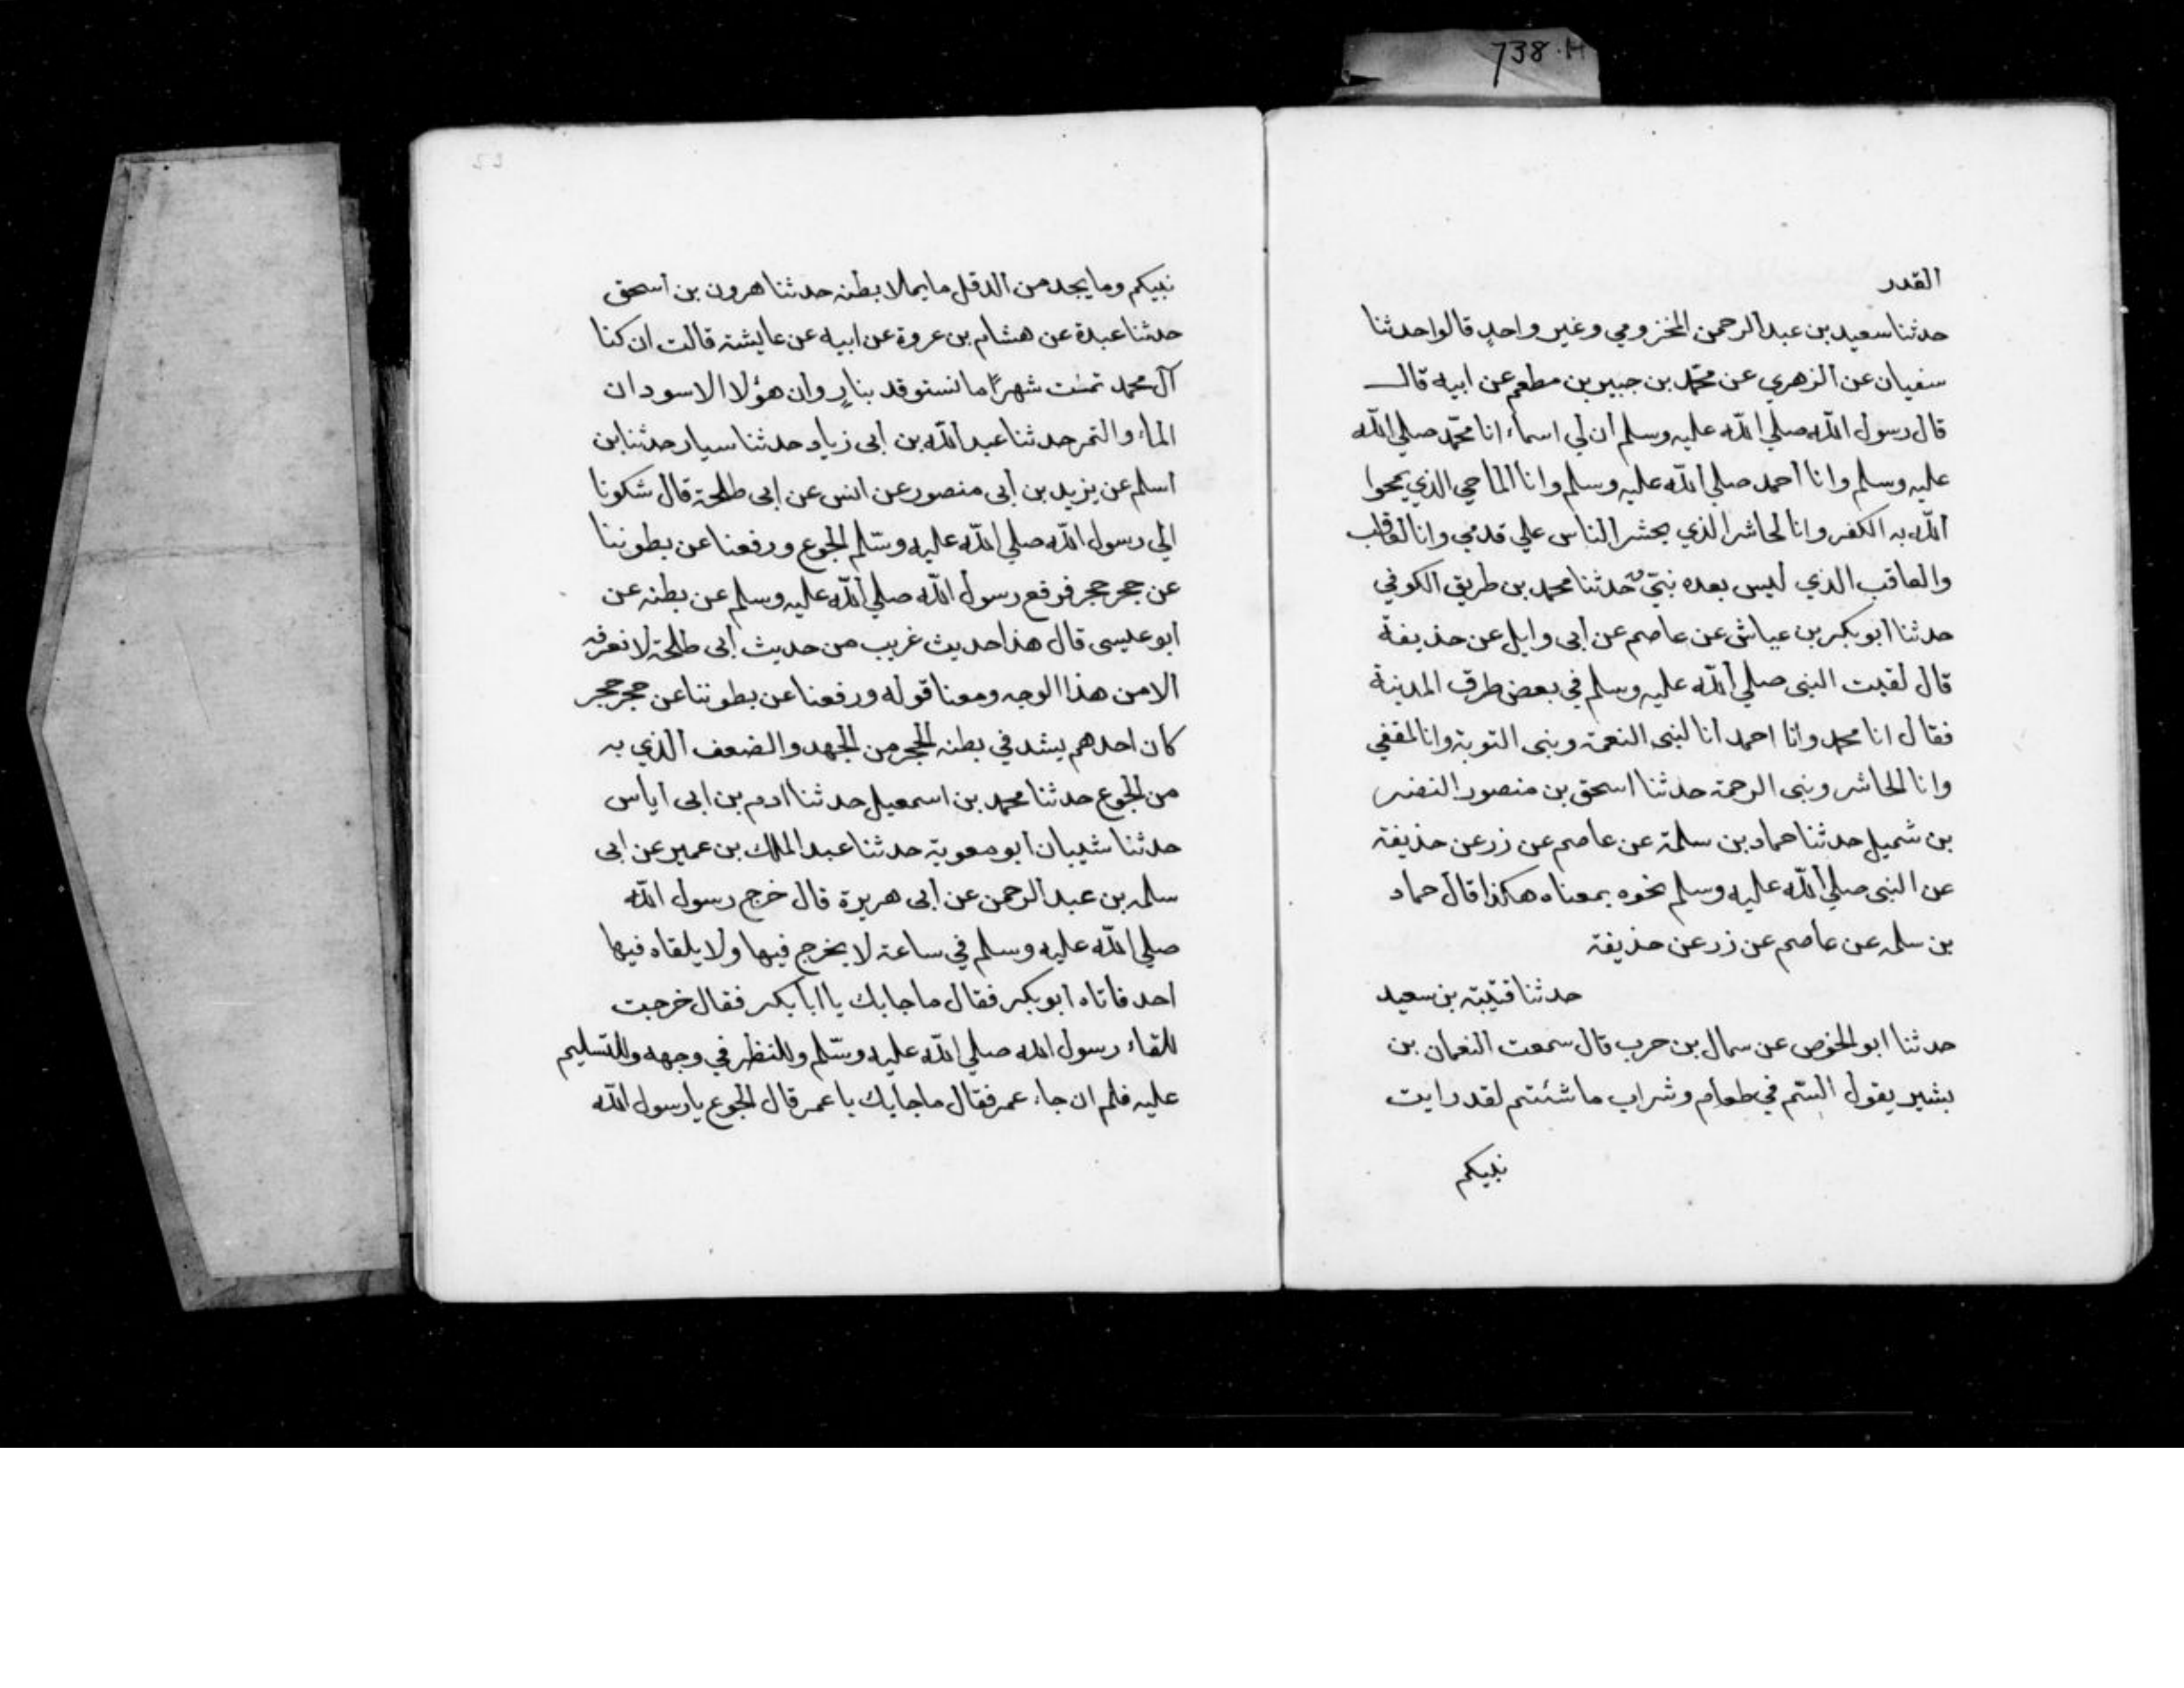 738.H
القدر
حدثنا سعيد بن عبد الرحمن المخزومي وغير واحدٍ قالوا حدثنا
سفيان عن الزهري عن محمّد بن جبير بن مطعم عن ابيه قال
قال رسول الله صلي الله عليه وسلم أن لي اسماء انا محمّد صلي الله
عليه وسلم وانا أحمد صلي الله عليه وسلم وانا الماحي الذي يمحوا
الله به الكفر وانا الحاشر الذي يحشر الناس علي قدمي وانا العاقب
والعاقب الذي ليس بعده نبيّ حدثنا محمد بن طريق الكوفي
حدثنا أبو بكر بن عياش عن عاصم عن أبى وايل عن حذيفة
قال لقيت النبى صلي الله عليه وسلم في بعض طرق المدينة
فقال انا محمد وانا احمد انا لنبى النعمة ونبى التوبة وانا المقفي
وانا الحاشر ونبى الرحمة حدثنا اسحق بن منصور النضر
بن شميل حدثنا حماد بن سلمة عن عاصم عن زر عن حذيفة
عن النبى صلي الله عليه وسلم نحوه بمعناه هكذا قال حماد
بن سلمه عن عاصم عن زر عن حذيفة
حدثنا قتيبة بن سعيد
حدثنا ابو الخوص عن سمال بن حرب قال سمعت النعمان بن
بشير يقول الستم في طعام وشراب ما شئتم لقد رايت
نبيكم
نبيكم وما يجد من الدقل ما يملا بطنه حدثنا هرون بن اسحق
حدثنا عبدة عن هشام بن عروة عن ابيه عن عايشة قالت ان كنا
آل محمد تمثت شهرًا ما نستوقد بنارٍ وان هؤلا الاسودان
الماء والتمر حدثنا عبد الله بن أبى زياد حدثنا سيار حدثنا بن
اسلم عن يزيد بن أبى منصور عن انس عن ابى طلحة قال شكونا
الي رسول الله صلي الله عليه وسلم الجوع ورفعنا عن بطوننا
عن حجر حجر فرفع رسول الله صلي الله عليه وسلم عن بطنه عن
ابو عليسى قال هذا حديث غريب من حديث أبى طلحة لا نعرفه
الا من هذا الوجه ومعنا قوله ورفعنا عن بطوننا عن حجر حجر
كان احدهم يشد في بطنه الحجر من الجهد والضعف الذي به
من الجوع حدثنا محمد بن اسمعيل حدثنا ادم بن ابى أياس
حدثنا شيبان أبو معوية حدثنا عبد الملك بن عمير عن ابى
سلمه بن عبد الرحمن عن أبى هريرة قال خرج رسول الله
صلي الله عليه وسلم في ساعة لا يخرج فيها ولا يلقاه فيها
احد فاتاه ابو بكر فقال ما جابك يا ابا بكر فقال خرجت
للقاء رسول الله صلي الله عليه وسّلم وللنظر في وجهه وللتسليم
عليه فلم ان جاء عمر فقال ما جابك يا عمر قال الجوع يا رسول الله